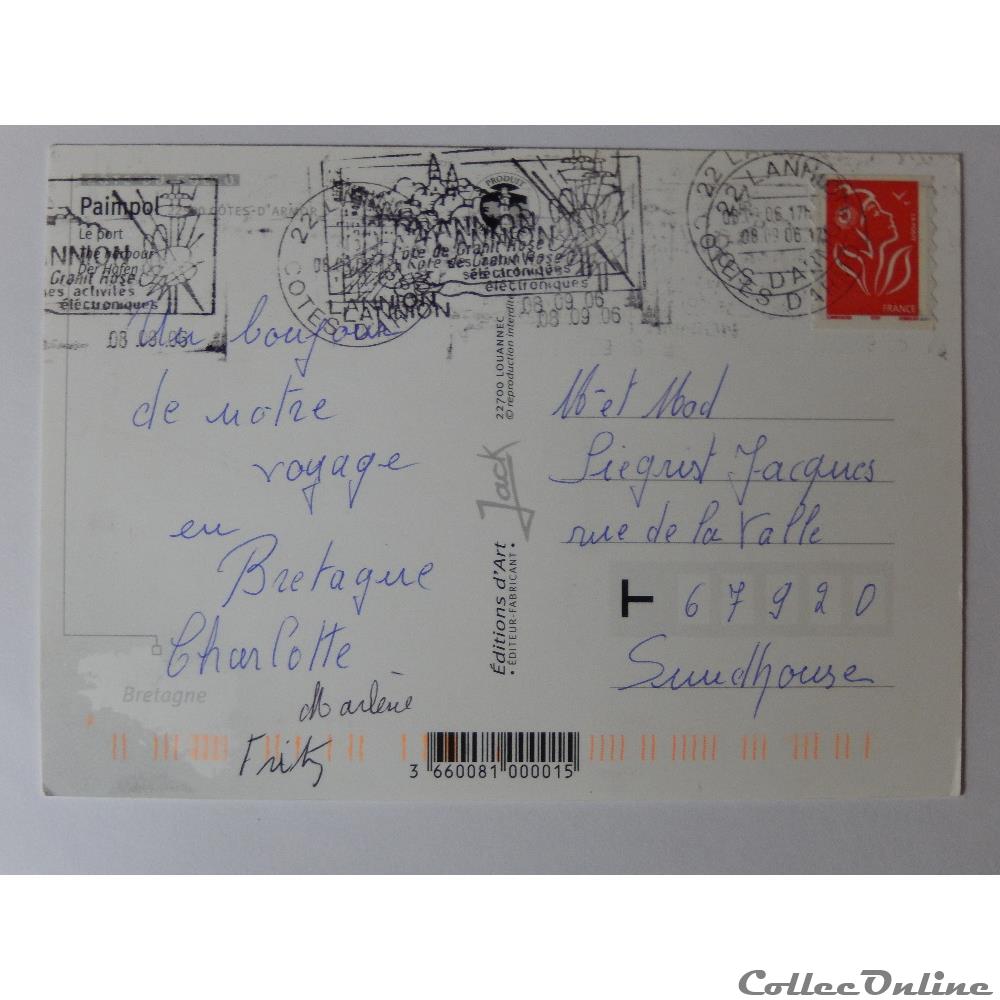 Paimpol
Le port
The harbour
Der Hafen
22 CÔTES-D'ARMOR
LANNION
Granit Rose
activités
électroniques
08 09 06
PRODUIT
LANNION
Côte de Granit Rose
ses activités
électroniques
08 09 06
08 09 06
22 LANNION
COTES D'ARMOR
08 09 06 17H
FRANCE
Un bonjour
de notre
voyage
en
Bretagne
Charlotte
Marlène
Fritz
Bretagne
22700 LOUANNEC
© reproduction interdite
Jack
Éditions d'Art
• ÉDITEUR-FABRICANT •
M et Mad
Siegrist Jacques
rue de la Valle
T 67920
Sundhouse
3 660081 000015
CollecOnline